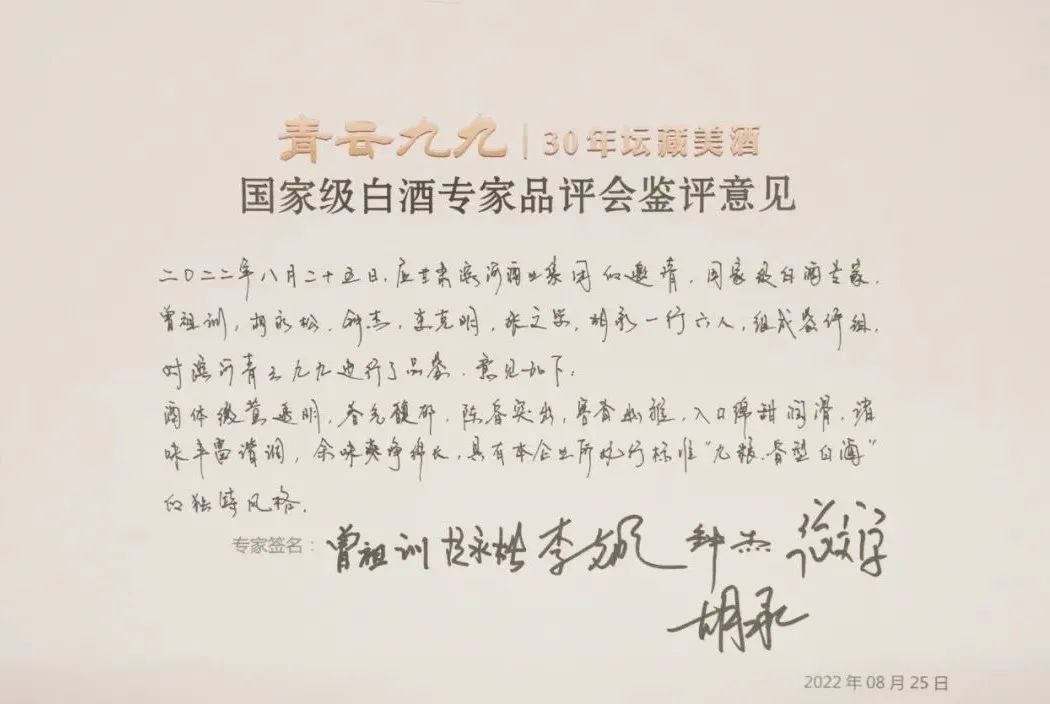 青云九九 | 30年坛藏美酒
国家级白酒专家品评会鉴评意见
二〇二二年八月二十五日,应甘肃滨河酒业集团的邀请,国家级白酒专家,
曾祖训,胡永松,钟杰,李克明,张文学,胡承一行六人,组成鉴评组,
对滨河青云九九进行了品鉴.意见如下:
酒体微黄透明,香气馥郁,陈香突出,窖香幽雅,入口绵甜润滑,诸
味丰富谐调,余味爽净绵长,具有本企业所执行标准“九粮香型白酒”
的独特风格.
专家签名: 曾祖训 胡永松 李克明 钟杰 张文学
胡承
2022年08月25日